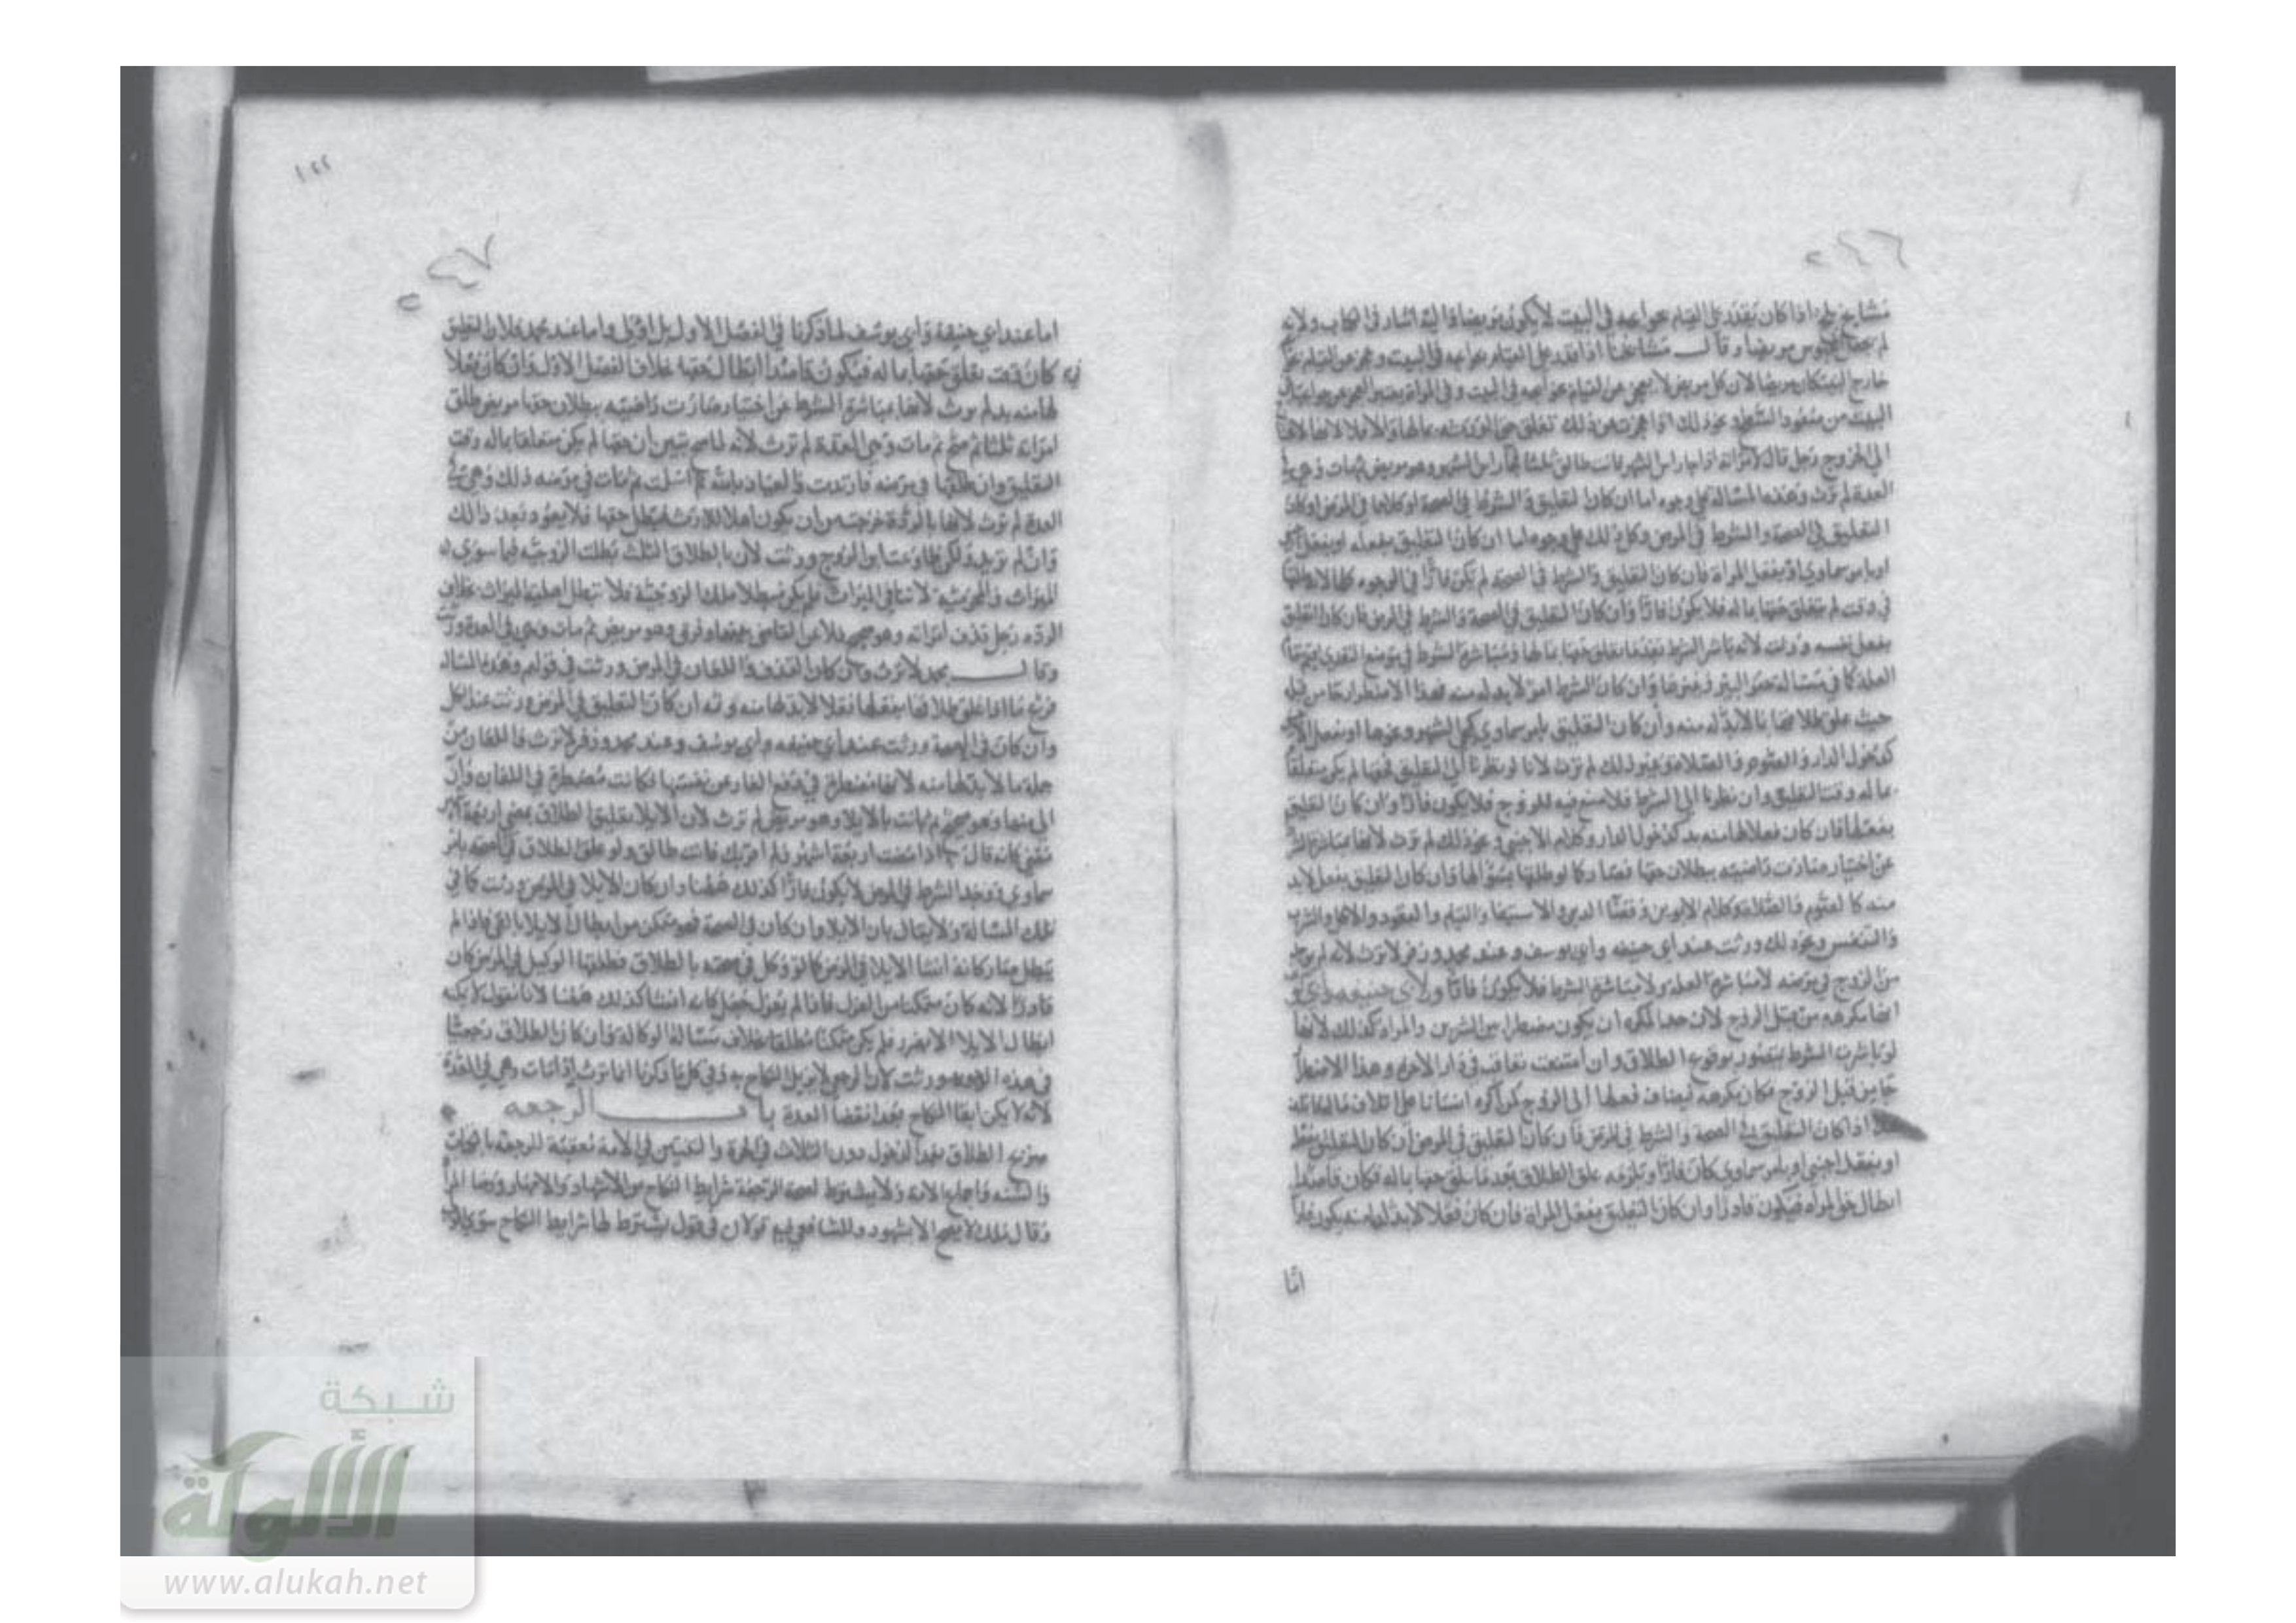 ٢٤٦
مشايخ بلخ اذا كان يقدر على القيام بحوايجه في البيت لا يكون مريضا واليه اشار في الكتاب ولانه
لم يجعل المحبوس مريضا وقال مشايخنا اذا قدر على القيام بحوايجه في البيت وعجز عن القيام بها
خارج البيت كان مريضا لان كل مريض لا يعجز عن القيام بحوايجه في البيت وفي المراة يعتبر العجز عن حوايجها في
البيت من صعود السطح ونحو ذلك اذا عجزت عن ذلك تعلق حق الورثة بمالها والا فلا لانها لا
الى الخروج رجل قال لامراته اذا جا راس الشهر فانت طالق ثلثا فجا راس الشهر وهو مريض ثم مات وهي في
العدة لم ترث وهذه المسالة على وجوه اما ان كان التعليق والشرط في الصحة او كلاهما في المرض او كان
التعليق في الصحة والشرط في المرض وكل ذلك على وجوه اما ان كان التعليق بفعله او بفعل
او بامر سماوي او بفعل المراة فان كان التعليق والشرط في الصحة لم يكن فارا في الوجوه كلها لانه طلقها
في وقت لم يتعلق حقها بماله فلا يكون فارا وان كان التعليق في الصحة والشرط في المرض فان كان التعليق
بفعل نفسه ورثت لانه باشر الشرط بعد ما تعلق حقها بماله ومباشرة الشرط في موضع التعدي
العلة كما في مسالة حفر البير وغيرها وان كان الشرط امرا لابد له منه فهذا الاضطرار جا من قبله
حيث علق طلاقها بما لابد له منه وان كان التعليق بامر سماوي كمجي الشهر وغيرها او بفعل
كدخول الدار والصوم والصلاة وغير ذلك لم ترث لانا لو نظرنا الى التعليق فحقها لم يكن متعلقا
بماله وقت التعليق وان نظرنا الى الشرط فلا صنع فيه للزوج فلا يكون فارا وان كان التعليق
بفعلها فان كان فعلا لها منه بد كدخول الدار وكلام الاجنبي ونحو ذلك لم ترث لانها بمباشرة الشرط
عن اختيار صارت راضية ببطلان حقها فصار كما لو طلقها بسؤالها وان كان التعليق بفعل لابد
منه كالصوم والصلاة وكلام الابوين وقضا الدين والاستيفا والقيام والقعود والاكل والشرب
والتنفس ونحو ذلك ورثت عند ابي حنيفة وابي يوسف وعند محمد وزفر لا ترث لانه لم يوجد
من الزوج في مرضه لا مباشرة العلة ولا مباشرة الشرط فلا يكون فارا ولابي حنيفة وابي
انها مكرهة من قبل الزوج لان حد المكره ان يكون مضطرا بين الشرين والمراة كذلك لانها
لو باشرت الشرط يتصور بوقوع الطلاق وان امتنعت تعاقب في دار الاخرة وهذا الاضطرار
جا من قبل الزوج فكان مكرها فيضاف فعلها الى الزوج كمن اكره انسانا على اتلاف مال
اذا كان التعليق في الصحة والشرط في المرض فان كان التعليق في المرض ان كان التعليق بفعله
او بفعل اجنبي او بامر سماوي كان فارا وتلزمه علق الطلاق بعد ما تعلق حقها بماله فكان قاصدا
ابطال حق المراة فيكون فارا وان كان التعليق بفعل المراة فان كان فعلا لابد لها منه يكون فارا
اما
٢٤٧
اما عند ابي حنيفة وابي يوسف لما ذكرنا في الفصل الاول بل اولى واما عند محمد فلان التعليق
كان وقت تعلق حقها بماله فيكون قاصدا ابطال حقها بخلاف الفصل الاول وان كان فعلا
لها منه بد لم ترث لانها بمباشرة الشرط عن اختيار صارت راضية ببطلان حقها مريض طلق
امراته ثلثا ثم صح ثم مات وهي في العدة لم ترث لانه لما صح تبين ان حقها لم يكن متعلقا بماله وقت
التعليق وان طلقها في مرضه فارتدت والعياذ بالله ثم اسلمت ثم مات في مرضه ذلك وهي في
العدة لم ترث لانها بالردة خرجت من ان يكون اهلا للارث فبطل حقها فلا يعود بعد ذلك
وان لم ترتد ولكن طاوعت ابن الزوج ورثت لان بالطلاق الثلث بطلت الزوجية فيما سوى
الميراث والمحرمية لا تنافي الميراث فلم يكن مبطلا ملك الزوجية فلا تبطل اهلية الميراث بخلاف
الردة رجل قذف امراته وهو صحيح ولاعن القاضي بينهما وفرق وهو مريض ثم مات وهي في العدة ورثت
وقال محمد لا ترث وان كان القذف واللعان في المرض ورثت في قولهم وهذه المسالة
فرع ما اذا علق طلاقها بفعلها فعلا لابد لها منه وثمه ان كان التعليق في المرض ورثت عند الكل
وان كان في الصحة ورثت عند ابي حنيفة وابي يوسف وعند محمد وزفر لا ترث فاللعان من
جملة ما لابد لها منه لانها مضطرة في دفع العار عن نفسها فكانت مضطرة في اللعان وان
الى منها وهو صحيح ثم بانت بالايلا وهو مريض لم ترث لان الايلا تعليق الطلاق بمضي اربعة اشهر
فصار كانه قال اذا مضت اربعة اشهر ولم اقربك فانت طالق ولو علق الطلاق في الصحة بامر
سماوي ووجد الشرط في المرض لا يكون فارا كذلك ههنا وان كان الايلا في المرض ورثت كما في
تلك المسالة ولا يقال بان الايلا وان كان في الصحة فهو متمكن من ابطال الايلا بالفي فاذا لم
يبطل صار كانه انشا الايلا في المرض كما لو وكل في صحته بالطلاق فطلقها الوكيل في المرض كان
فارا لانه كان متمكنا من العزل فاذا لم يعزل جعل كانه انشا كذلك ههنا لانا نقول لا يمكنه
ابطال الايلا الا بضرر فلم يكن متمكنا مطلقا بخلاف مسالة الوكالة وان كان الطلاق رجعيا
في هذه الوجوه ورثت لان الرجعي لا يزيل النكاح وفي كل ما ذكرنا انما ترث اذا مات وهي في العدة
لانه لا يمكن ابقا النكاح بعد انقضا العدة باب الرجعة
صريح الطلاق بعد الدخول دون الثلاث في الحرة والثنتين في الامة معقبة للرجعة بالكتاب
والسنة واجماع الامة ولا يشترط لصحة الرجعة شرايط النكاح من الاشهاد والامهار ورضا المراة
وقال مالك لا يصح الا بشهود وللشافعي فيه قولان في قول يشترط لها شرايط النكاح سوى
شبكة
الألوكة
www.alukah.net